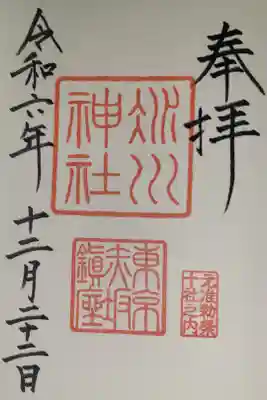 奉拝
氷川
神社
東京
赤坂
鎮座
元准勅祭
十社之内
令和六年 十二月二十二日